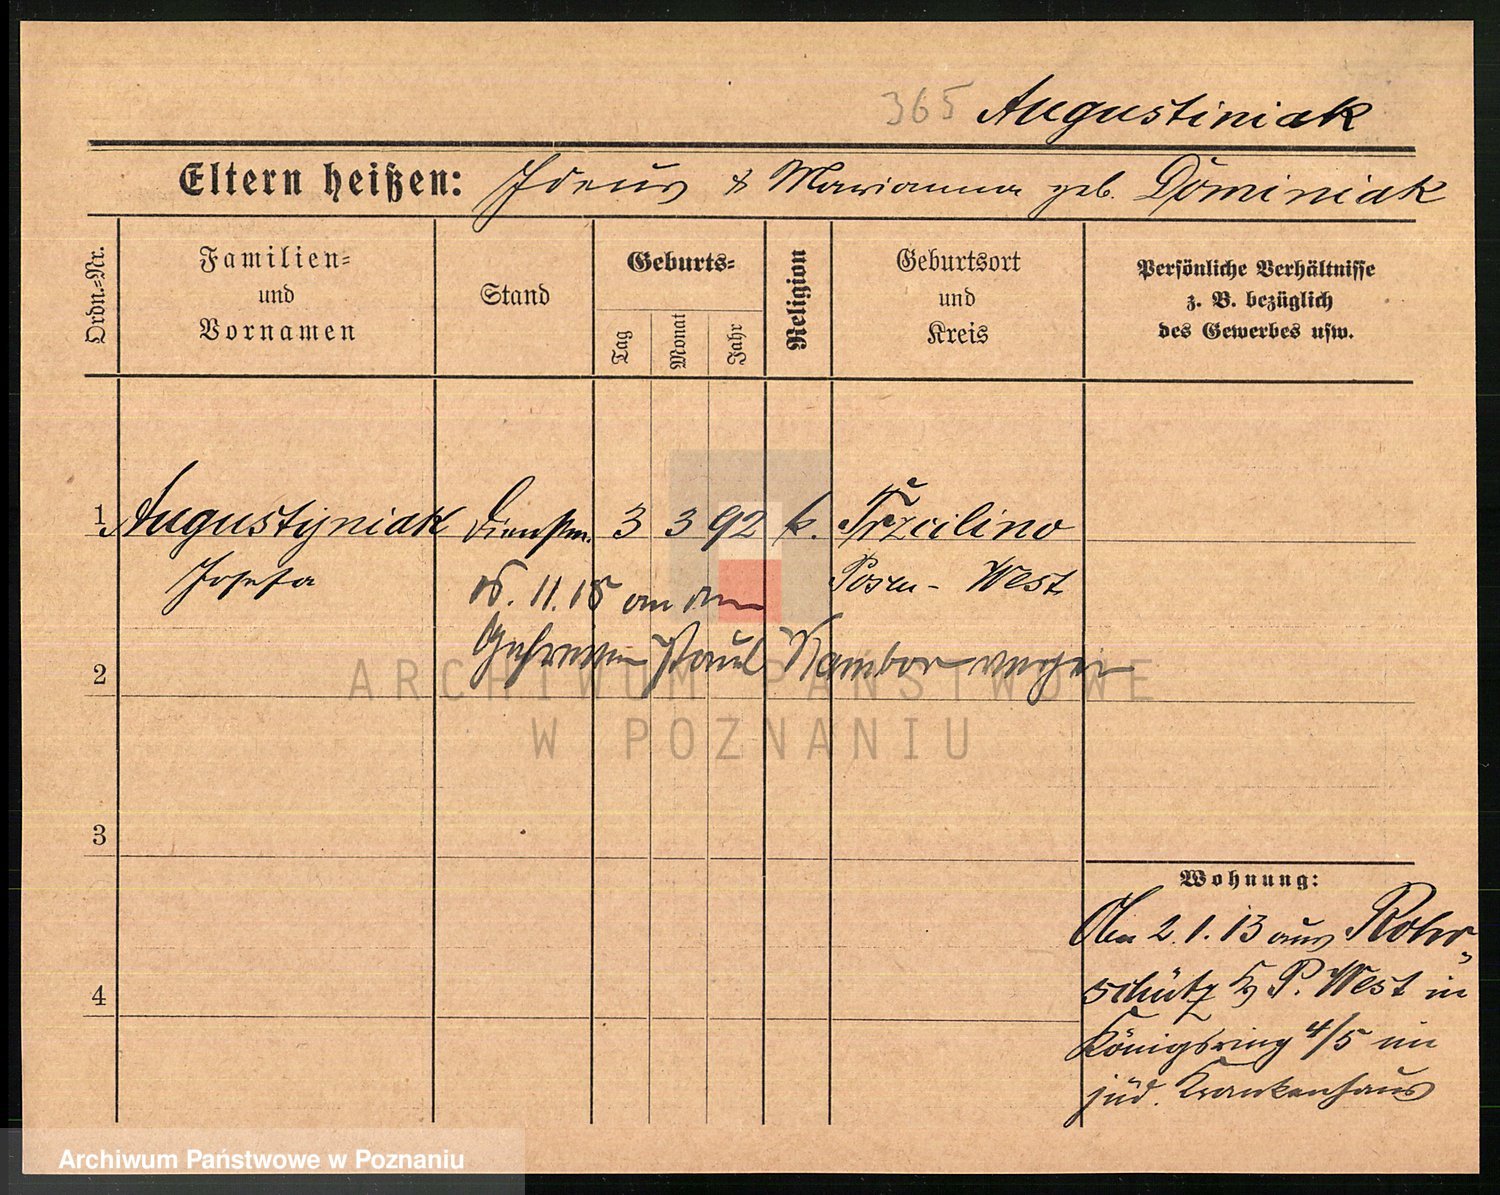 365 Augustiniak
Eltern heißen: & Marianna geb. Dominiak
Ordn.=Nr.
Familien=
und
Vornamen
Stand
Geburts=
Tag
Monat
Jahr
Religion
Geburtsort
und
Kreis
Persönliche Verhältnisse
z. B. bezüglich
des Gewerbes usw.
1 Augustyniak Dienstm. 3 3 92 k. Trzcilino
Josefa
Posen - West
11. 18 an den
Gefreiten Paul Kambor
2
ARCHIWUM PAŃSTWOWE
W POZNANIU
3
Wohnung:
2. 1. 13 aus Rohr-
schütz P. West in
4
Königsring 4/5 im
jüd. Krankenhaus
Archiwum Państwowe w Poznaniu